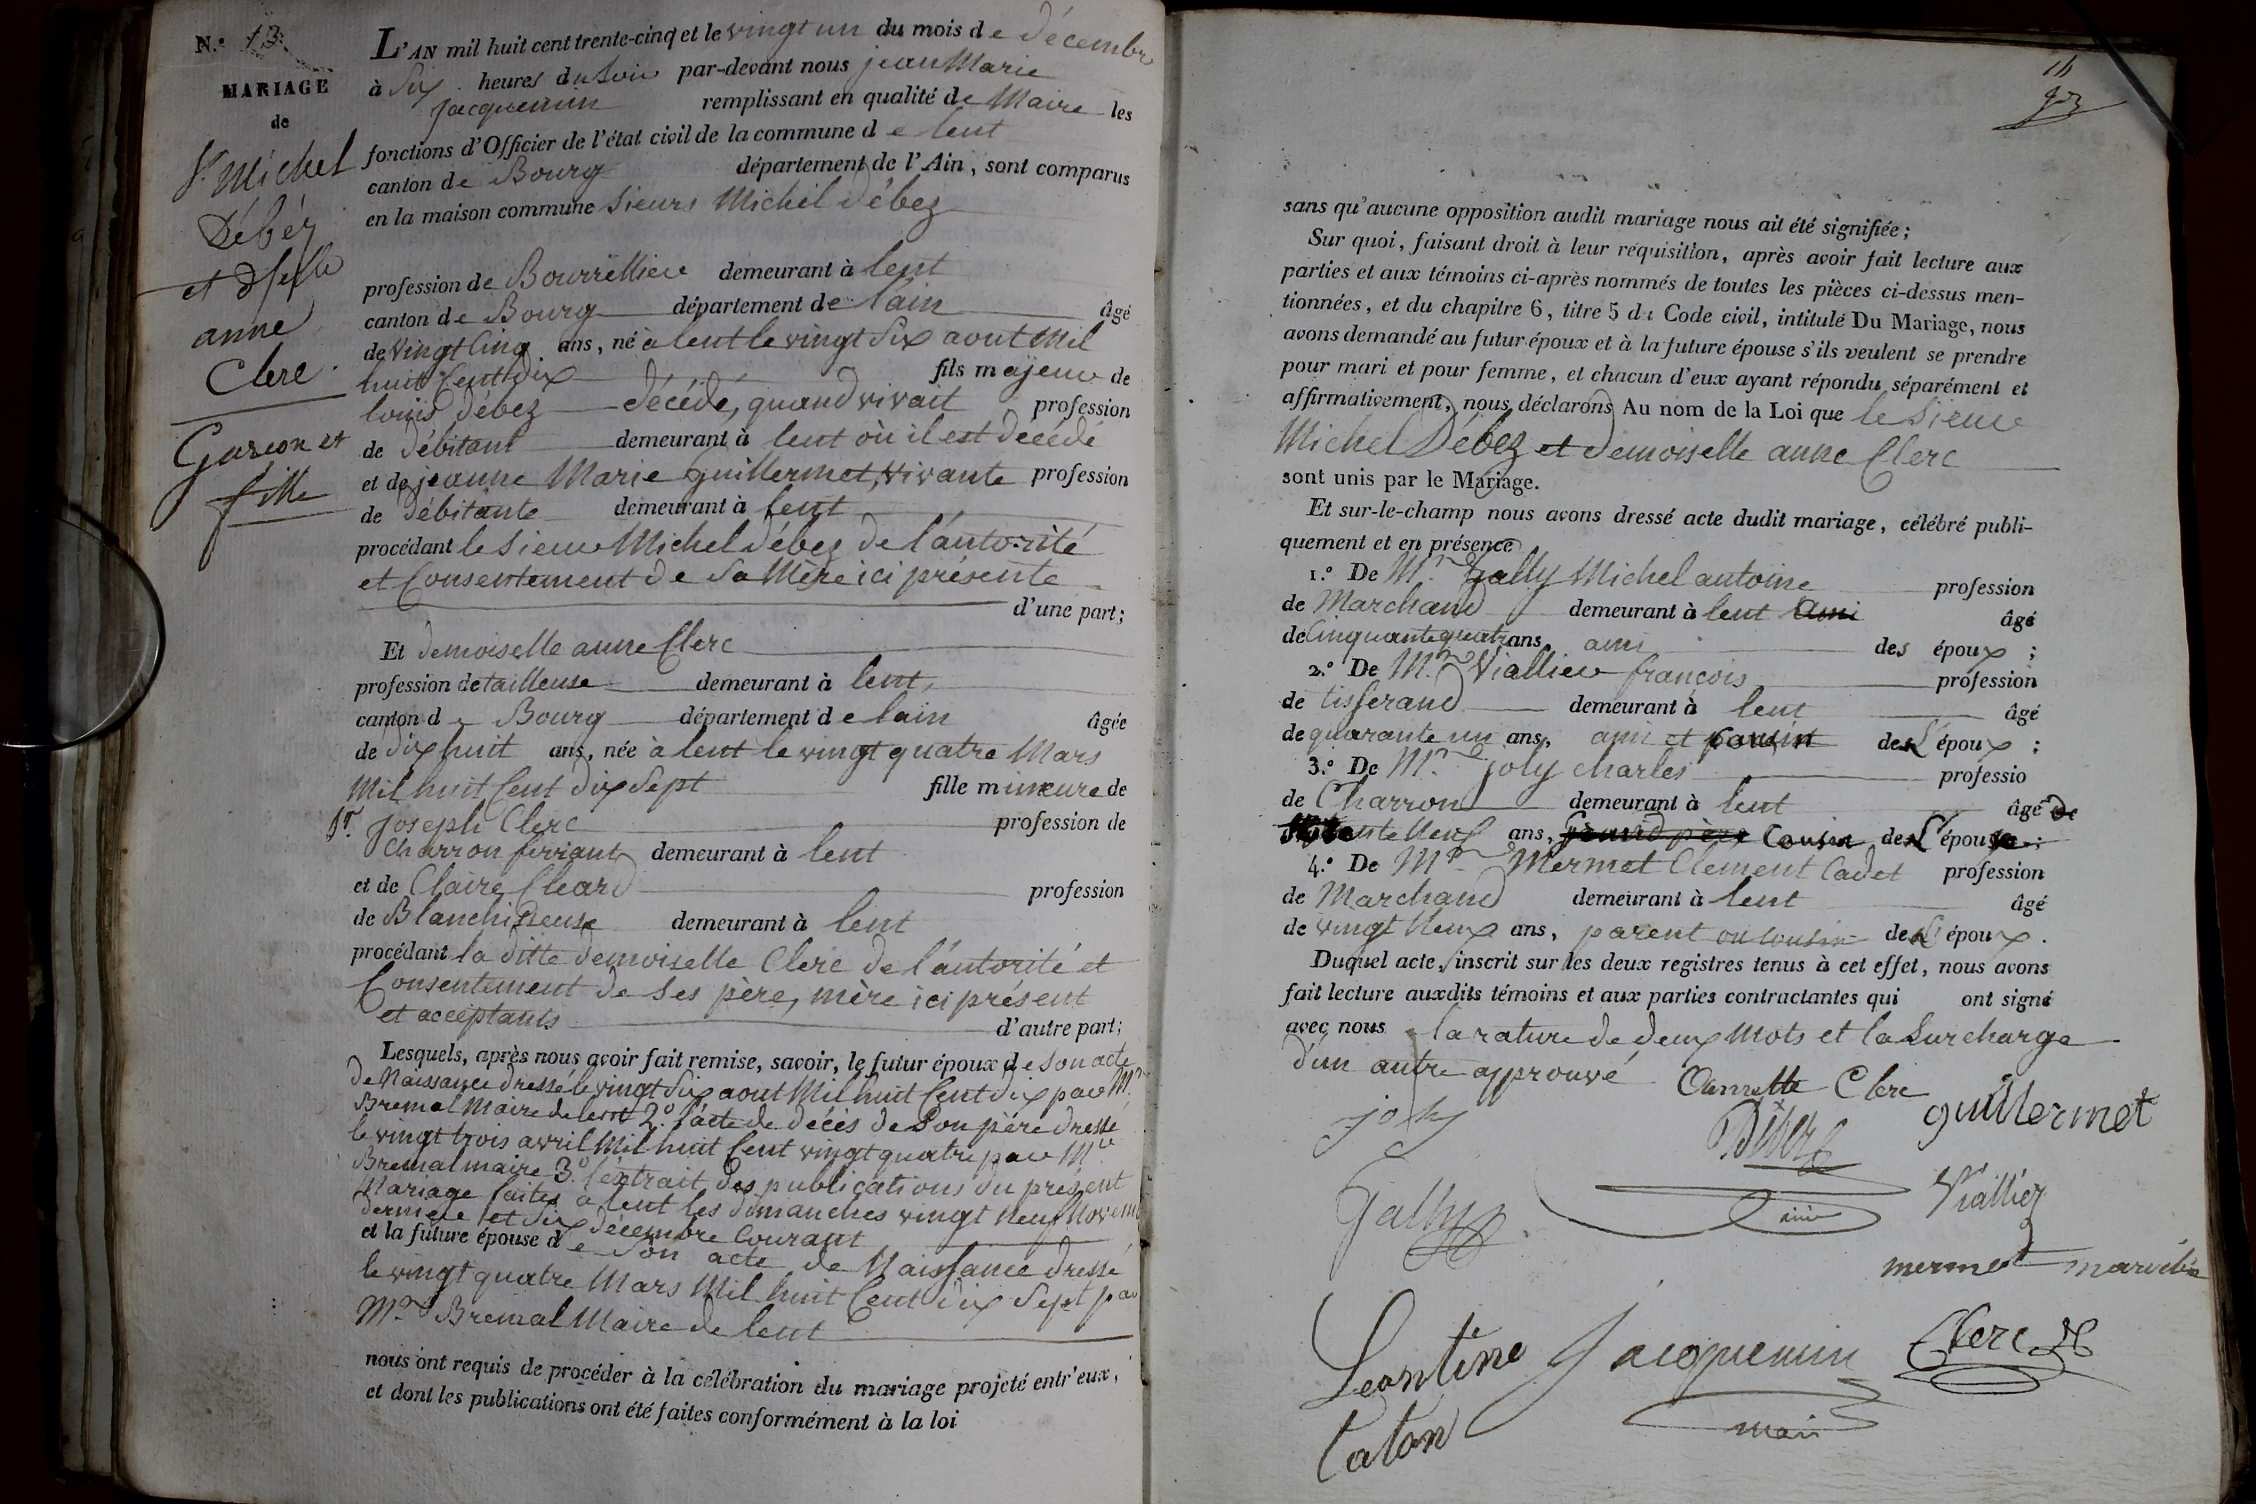 N.o 13.
MARIAGE
de
Sr. Michel
Débéz
et dselle
anne
Clerc.
Garçon et
fille
L'AN mil huit cent trente-cinq et le vingt un du mois de décembre
à Six heures du Soir par-devant nous jean Marie
jacquemin remplissant en qualité de Maire les
fonctions d'Officier de l'état civil de la commune de lent
canton de Bourg département de l'Ain, sont comparus
en la maison commune Sieurs Michel débez
profession de Bourrellier demeurant à lent
canton de Bourg département de lain âgé
de vingt Cinq ans, né à lent le vingt Six aout Mil
huit Cent dix fils majeur de
louis débez décédé, quand vivait profession
de débitant demeurant à lent où il est décédé
et de jeanne Marie guillermet, vivante profession
de débitante demeurant à lent
procédant le Sieur Michel débez de l'autorité
et Consentement de Sa Mère ici présente
d'une part;
Et demoiselle anne Clerc
profession de tailleuse demeurant à lent,
canton de Bourg département de lain âgée
de dix huit ans, née à lent le vingt quatre Mars
Mil huit Cent dix Sept fille mineure de
Sr. Joseph Clerc profession de
Charron ferrant demeurant à lent
et de Claire Cleard profession
de Blanchisseuse demeurant à lent
procédant la ditte demoiselle Clerc de l'autorité et
Consentement de Ses père, mère ici présent
et acceptants d'autre part;
Lesquels, après nous avoir fait remise, savoir, le futur époux de son acte
de Naissance dressé le vingt Six aout Mil huit Cent dix par Mr.
Bremal Maire de lent 2.o l'acte de décès de Son père dressé
le vingt trois avril Mil huit Cent vingt quatre par Mr
Bremal maire 3.o l'extrait des publications du présent
Mariage faites à lent les dimanches vingt Neuf Novemb
dernière et Six décembre Courant
et la future épouse de Son acte de Naissance dressé
le vingt quatre Mars Mil huit Cent dix Sept par
Mr. Bremal Maire de lent
nous ont requis de procéder à la célébration du mariage projeté entr'eux,
et dont les publications ont été faites conformément à la loi
16
sans qu'aucune opposition audit mariage nous ait été signifiée;
Sur quoi, faisant droit à leur réquisition, après avoir fait lecture aux
parties et aux témoins ci-après nommés de toutes les pièces ci-dessus men-
tionnées, et du chapitre 6, titre 5 du Code civil, intitulé Du Mariage, nous
avons demandé au futur époux et à la future épouse s'ils veulent se prendre
pour mari et pour femme, et chacun d'eux ayant répondu séparément et
affirmativement, nous déclarons Au nom de la Loi que le Sieur
Michel Débez et demoiselle anne Clerc
sont unis par le Mariage.
Et sur-le-champ nous avons dressé acte dudit mariage, célébré publi-
quement et en présence
1.o De Mr. Gally Michel antoine profession
de Marchand demeurant à lent ami âgé
de Cinquante quatr ans, ami des époux;
2.o De Mr. Viallier françois profession
de tisserand demeurant à lent âgé
de quarante un ans, ami et cousin de L'époux;
3.o De Mr. joly charles professio
de Charron demeurant à lent âgé de
ante Neuf ans, grand père Cousin de L'épouse;
4.o De Mr. Mermet Clement Cadet profession
de Marchand demeurant à lent âgé
de vingt Neuf ans, parent ou cousin de L'époux.
Duquel acte, inscrit sur les deux registres tenus à cet effet, nous avons
fait lecture auxdits témoins et aux parties contractantes qui ont signé
avec nous la rature de deux Mots et la Surcharge
d'un autre approuvé
Annette Clerc
joly
Débez
guillermet
Gally
Viallier
mermet
Leontine
Caton
Jacquemin
maire
Clerc